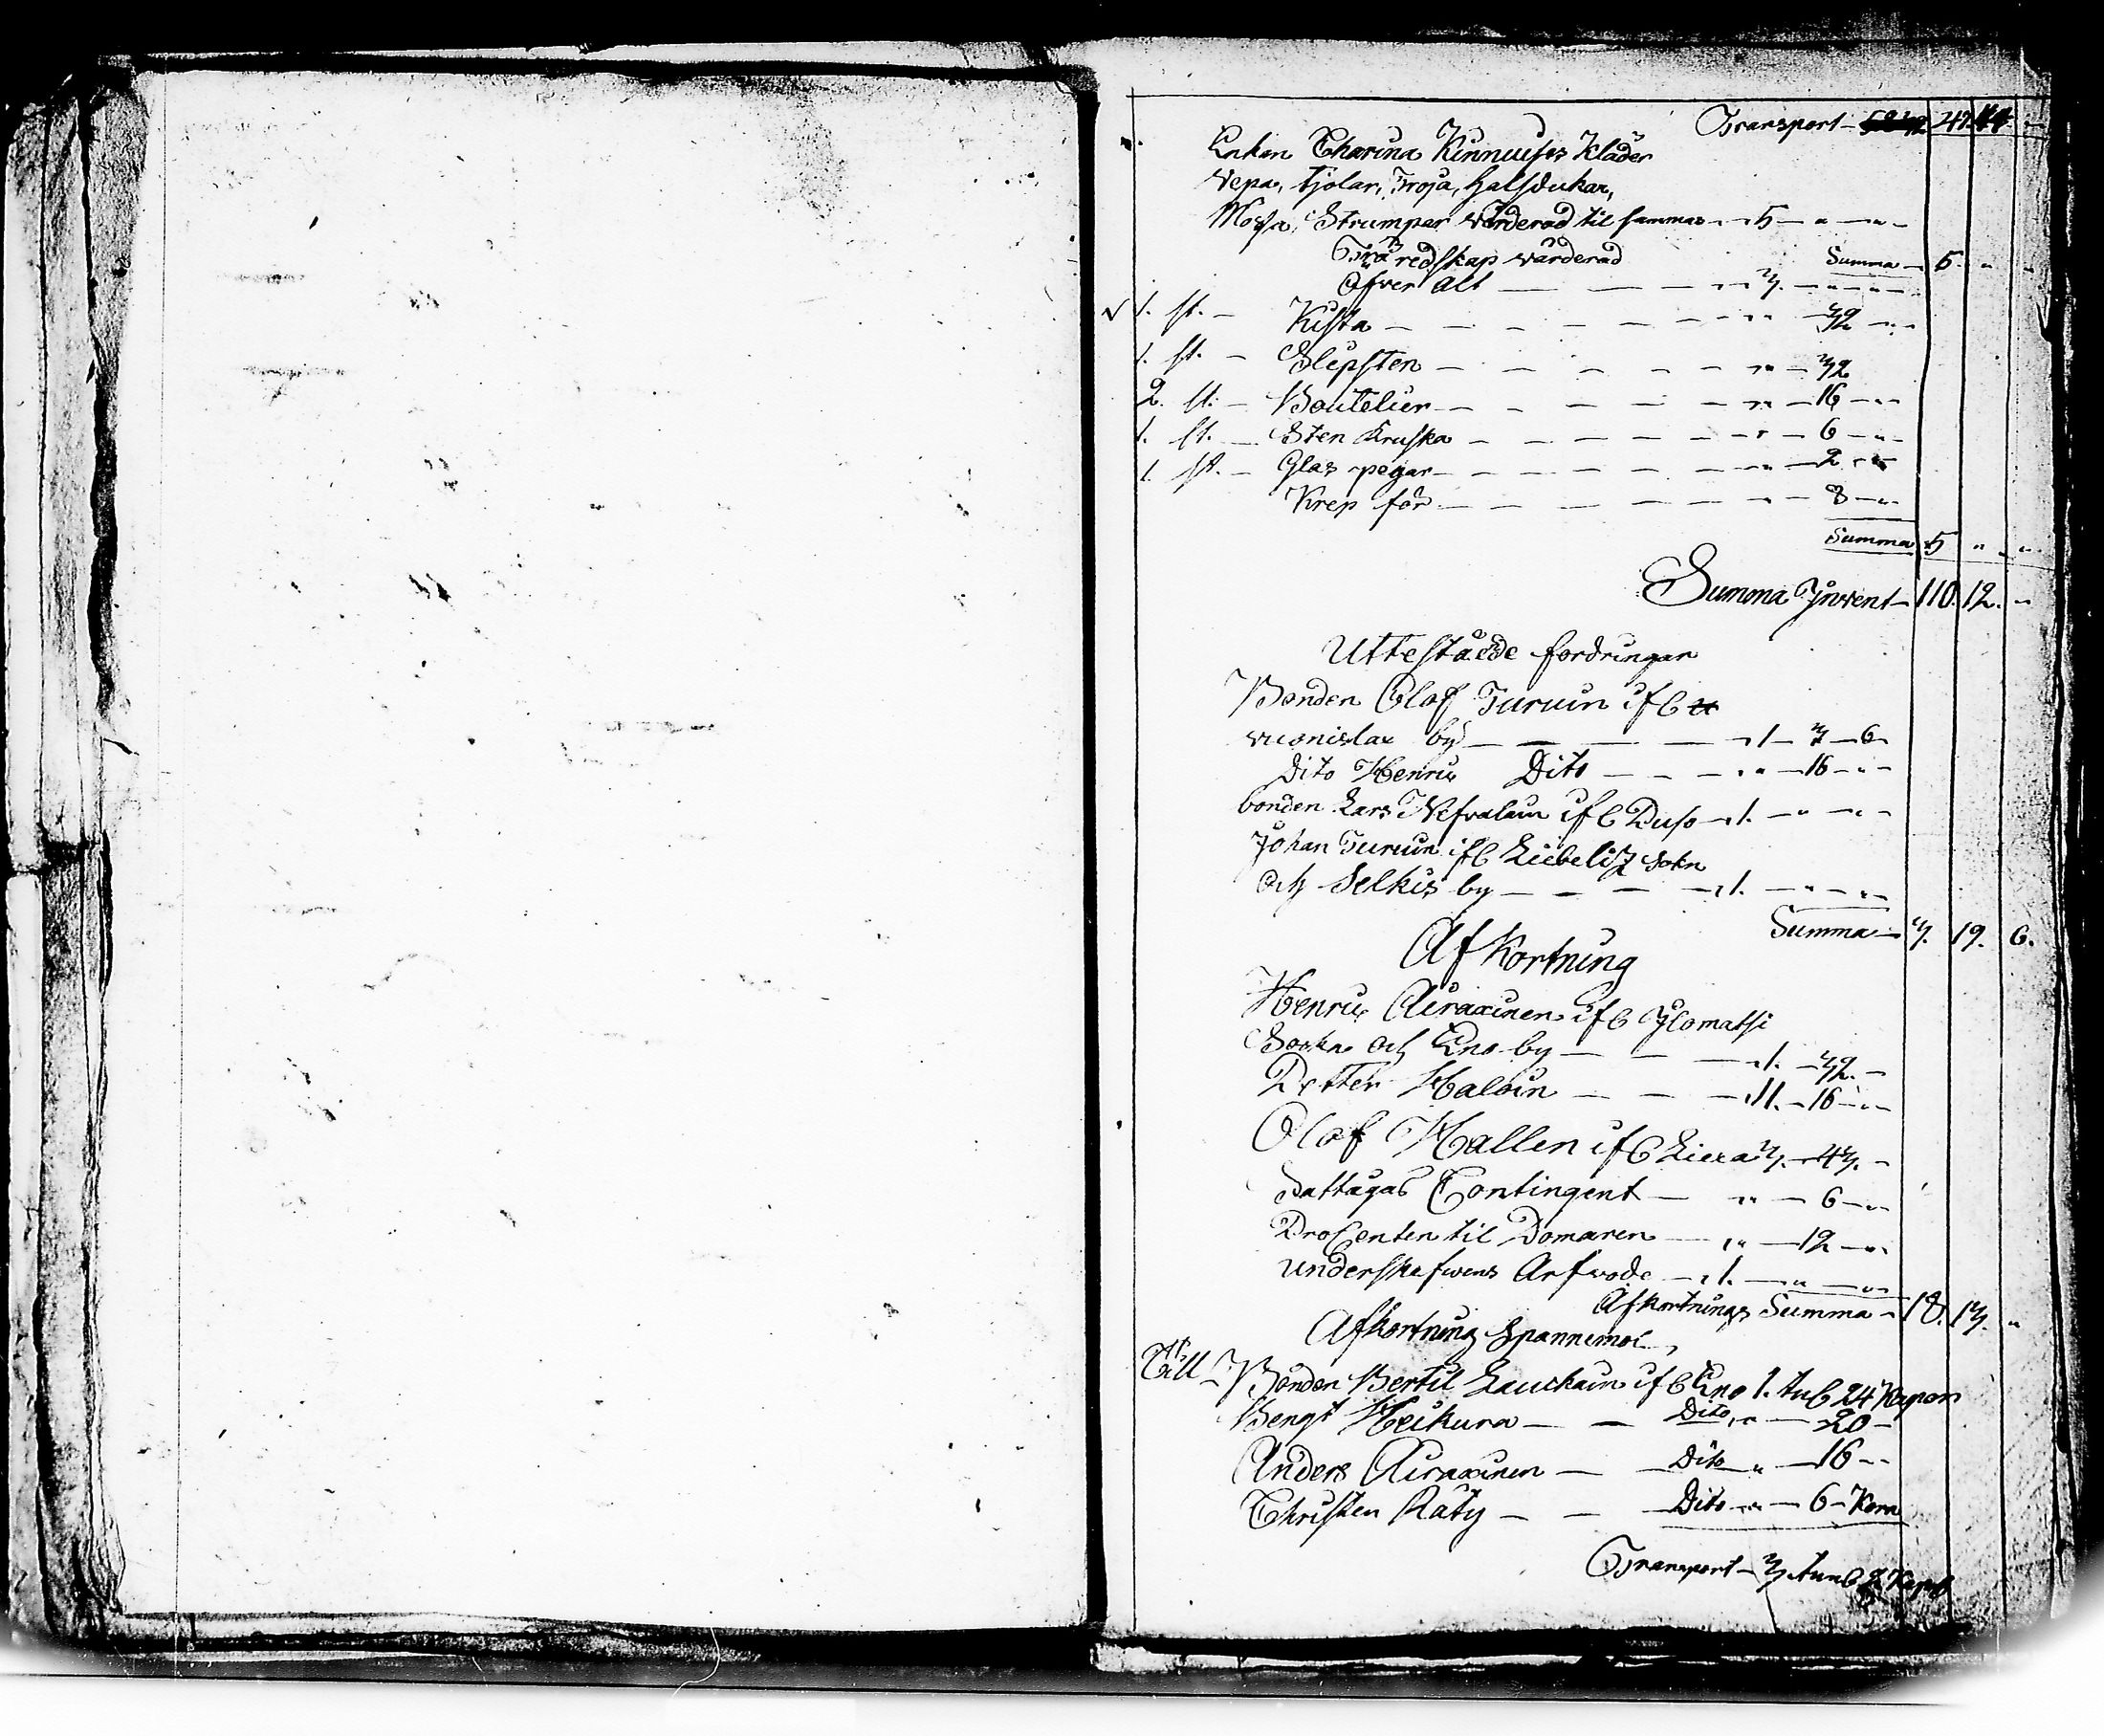 Transport - 47.
Enkan Charina Kinnuises Kläder
vepa, Kjolar, Tröja, Halsdukar,
Mössa, Strumpor värderad til sammas - 5 - " - " -
Trä redskap värderad Summa - 5 " "
öfver alt - 3. - " - "
1. st. - Kista - " - 32 - "
1. st. - Slipsten - " - 32
2. st. - Boutelier - " - 16 - "
1. st. - Sten Kruska - " - 6 - "
1. st. - Glas pegar - " - 2 - "
Krep för - " - 8 - "
Summa 5 " "
Summa Invent - 110. 12. "
Uttestäëde fordringar
Bonden Olof Turuin if6
vuonislax by - 1 - 3 - 6
Dito Henric Dito - " - 16 - " -
bonden Lars Nefvalain if6 - 1. - " - "
Johan Turuin if6 Liebelitz Sokn
och Selkis by - 1. - " - "
Summa - 3. 19. 6.
Afkortning
Henric Airaxinen if6 Ilomatsi
Sokn och Eno by - 1. - 32. -
Petter Haloin - 11. - 16 - "
Olof Hallin if6 Liexa 3. - 43. -
Fattigas Contingent - " - 6 - "
ProCenten til Domaren - " - 12 - "
underskrefwens Arfwode - 1. - " - "
Afkortnings Summa - 18. 13. "
Afkortning Spannemoi
Till Bonden Bertil Lauckain if6 Eno 1. tu6 24 Kapor
Bengt Heikura - Dito " - 20 -
Anders Airaxinen - Dito " - 16 - "
Christen Räty - Dito " - 6 - Korn
Transport - 3. tun6 2 Kap